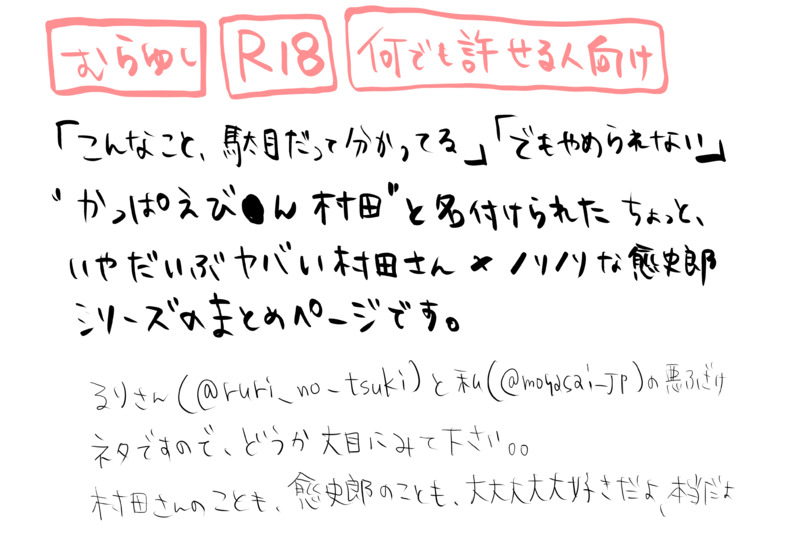 むらゆし R18 何でも許せる人向け
「こんなこと、駄目だって分かってる」「でもやめられない」
"かっぱえび●ん村田"と名付けられたちょっと、
いやだいぶヤバい村田さん×ノリノリな愈史郎
シリーズのまとめページです。
るりさん(@ruri_no_tsuki)と私(@moyasai_JP)の悪ふざけ
ネタですので、どうか大目にみて下さい。。
村田さんのことも、愈史郎のことも、大大大大大好きだよ、本当だよ